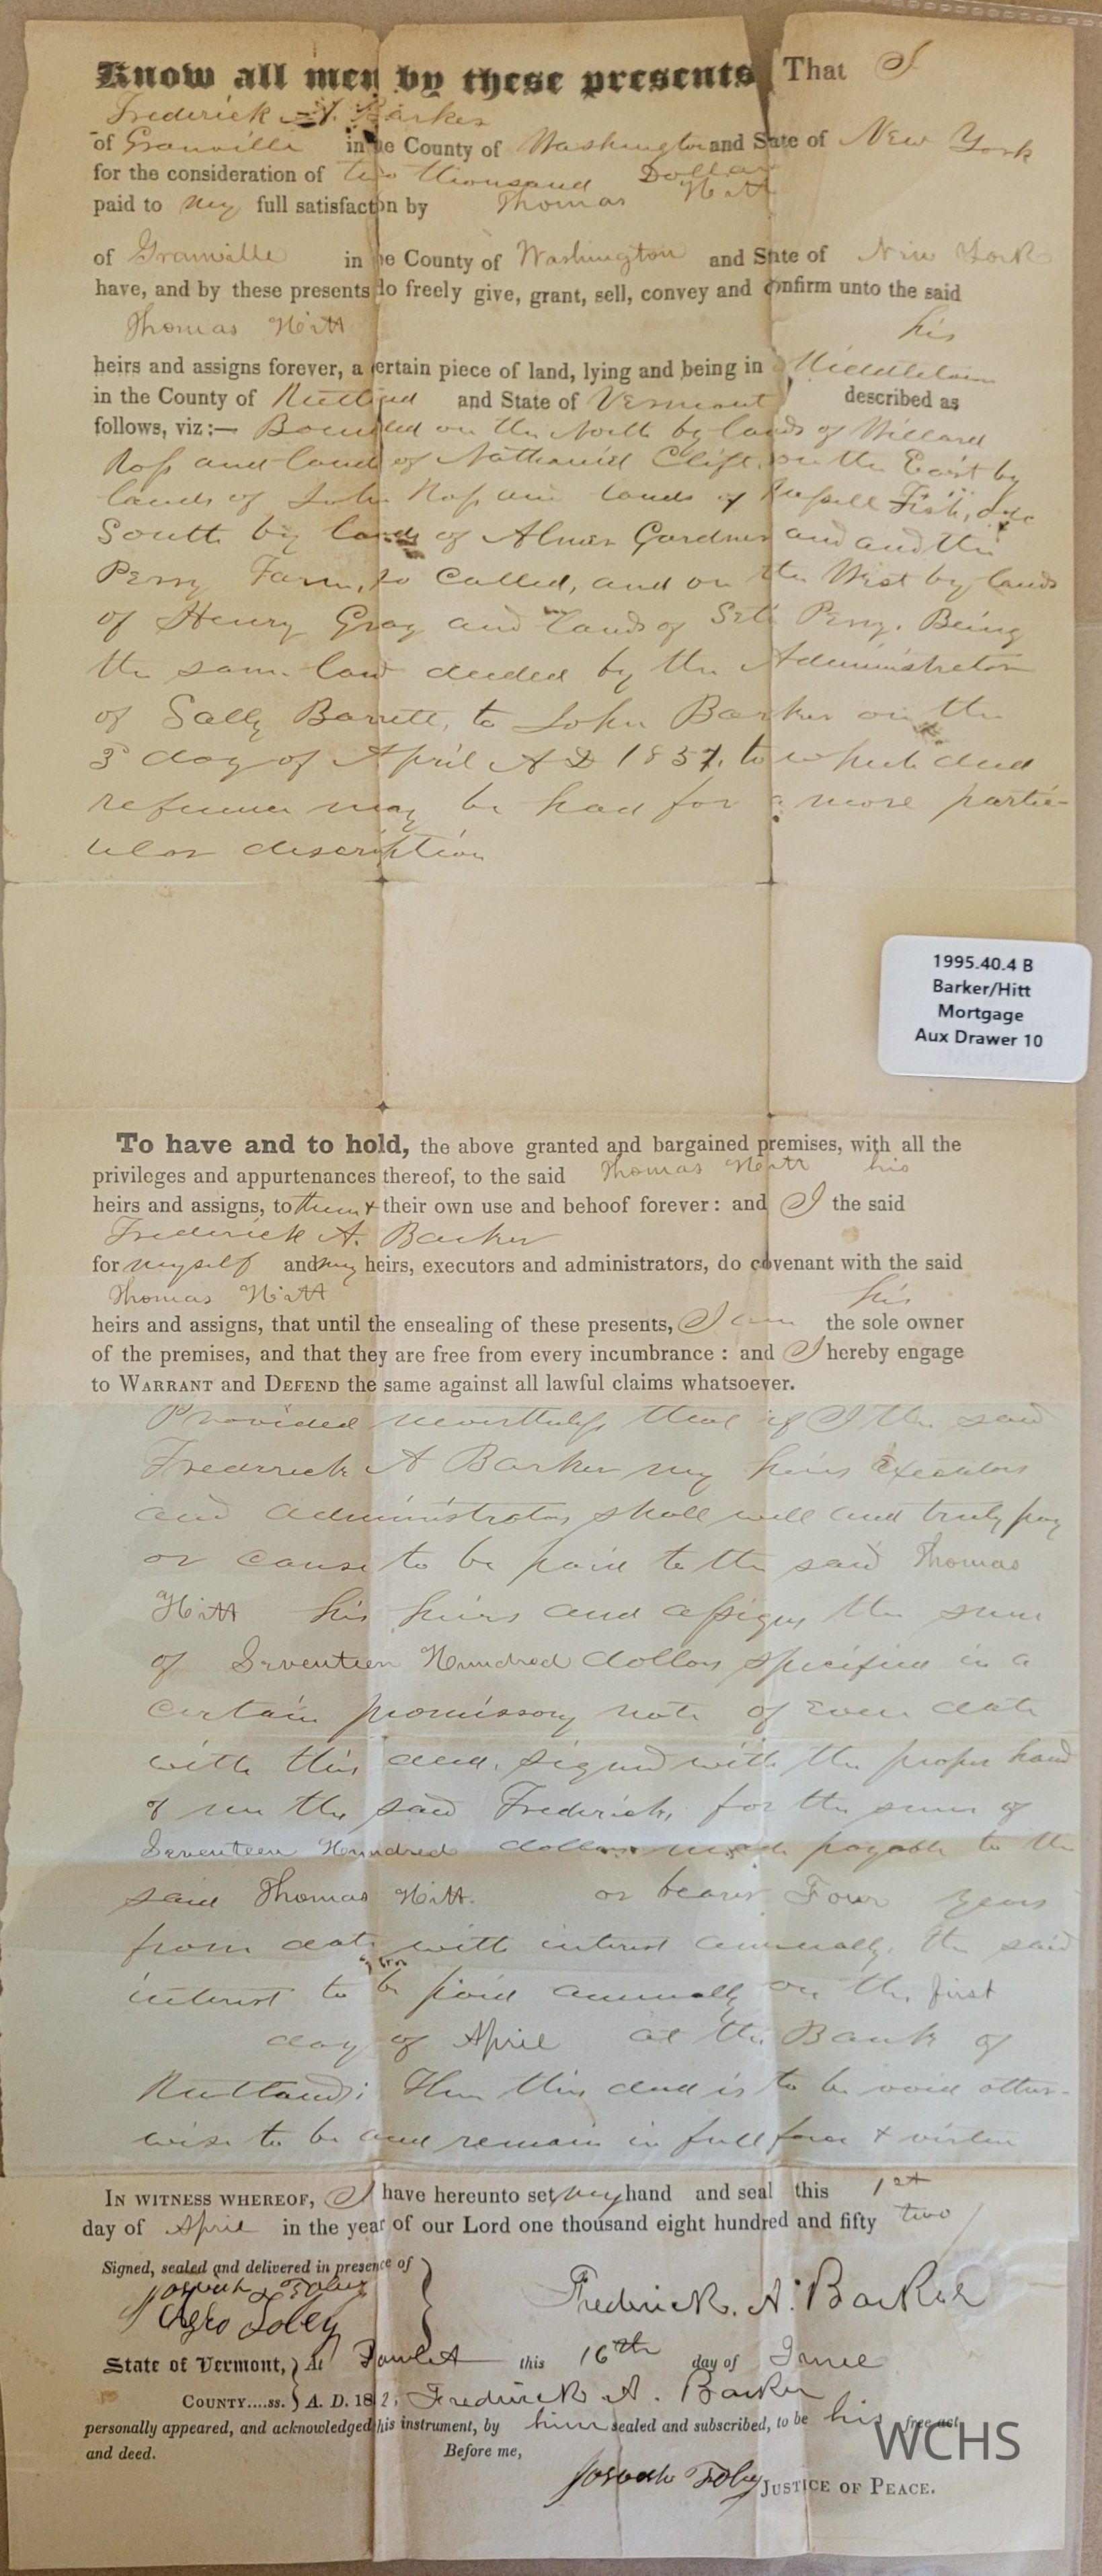 Know all men by these presents, That I
Frederick A. Barker
of Granville in the County of Washington and State of New York
for the consideration of two thousand Dollars
paid to my full satisfaction by Thomas Hitt
of Granville in the County of Washington and State of New York
have, and by these presents do freely give, grant, sell, convey and confirm unto the said
Thomas Hitt his
heirs and assigns forever, a certain piece of land, lying and being in Middletown
in the County of Rutland and State of Vermont described as
follows, viz:— Bounded on the North by lands of Willard
Ross and land of Nathaniel Clift, on the East by
lands of John Ross and lands of Russell Fisk,
South by lands of Abner Gardner and and the
Perry Farm, so called, and on the West by lands
of Henry Gray and lands of Seth Perry. Being
the same land deeded by the Administrator
of Sally Barrett, to John Barker on the
3 day of April AD 1837, to which deed
reference may be had for a more partic-
ular description
1995.40.4 B
Barker/Hitt
Mortgage
Aux Drawer 10
To have and to hold, the above granted and bargained premises, with all the
privileges and appurtenances thereof, to the said Thomas Hitt his
heirs and assigns, to them & their own use and behoof forever: and I the said
Frederick A. Barker
for myself and my heirs, executors and administrators, do covenant with the said
Thomas Hitt his
heirs and assigns, that until the ensealing of these presents, I am the sole owner
of the premises, and that they are free from every incumbrance: and I hereby engage
to WARRANT and DEFEND the same against all lawful claims whatsoever.
Provided nevertheless that if I the said
Frederick A Barker my heirs executors
and administrators shall well and truly pay
or cause to be paid to the said Thomas
Hitt his heirs and assigns the sum
of Seventeen Hundred dollars specified in a
certain promissory note of even date
with this deed, signed with the proper hand
of me the said Frederick, for the sum of
Seventeen Hundred dollars made payable to the
said Thomas Hitt. or bearer Four years
from date with interest annually, the said
interest to be paid annually on the first
day of April at the Bank of
Rutland; Then this deed is to be void other-
wise to be and remain in full force & virtue
IN WITNESS WHEREOF, I have hereunto set my hand and seal this 1st
day of April in the year of our Lord one thousand eight hundred and fifty two
Signed, sealed and delivered in presence of
Joseph Tobey
Tobey
Frederick. A. Barker
State of Vermont, } At Pawlet this 16th day of June
COUNTY....ss. } A. D. 18 2, Frederick A. Barker
personally appeared, and acknowledged this instrument, by him sealed and subscribed, to be his free act
and deed. Before me,
Joseph Tobey JUSTICE OF PEACE.
WCHS